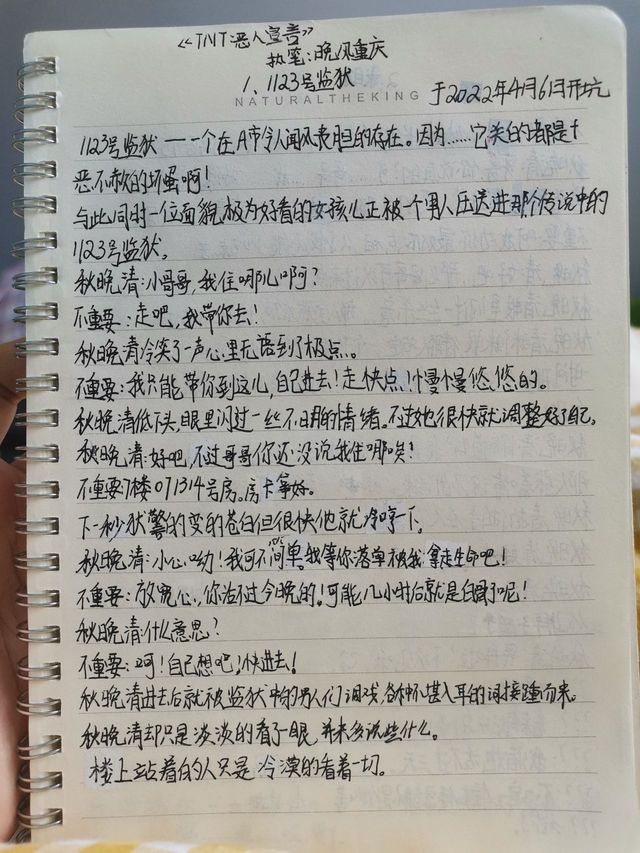 《TNT恶人宣言》
执笔:晚风重庆
1、1123号监狱
NATURALTHEKING
于2022年4月6日开坑
1123号监狱一一一个在A市令人闻风丧胆的存在。因为......它关的都是十
恶不赦的坏蛋啊!
与此同时一位面貌极为好看的女孩儿正被个男人压送进那个传说中的
1123号监狱。
秋晚清:小哥哥,我住哪儿啊?
不重要:走吧,我带你去!
秋晚清冷笑了一声心里无语到了极点。
不重要:我只能带你到这儿,自己进去!走快点,慢慢悠悠的。
秋晚清低下头,眼里闪过一丝不明的情绪。不过她很快就调整好了自己。
秋晚清:好吧,不过哥哥你还没说我住哪唉!
不重要7楼071314号房。房卡拿好。
下一秒狱警的变的苍白但很快他就冷哼一下。
秋晚清:小心呦!我可不简单,我等你落单被我拿走生命吧!
不重要:放宽心,你活不过今晚的!可能几小时后就是白骨了呢!
秋晚清:什么意思?
不重要:呵!自己想吧!快进去!
秋晚清进去后就被监狱中的男人们调戏,各种不堪入耳的词接踵而来。
秋晚清却只是淡淡的看了一眼,并未多说些什么。
楼上站着的人只是冷漠的看着一切。